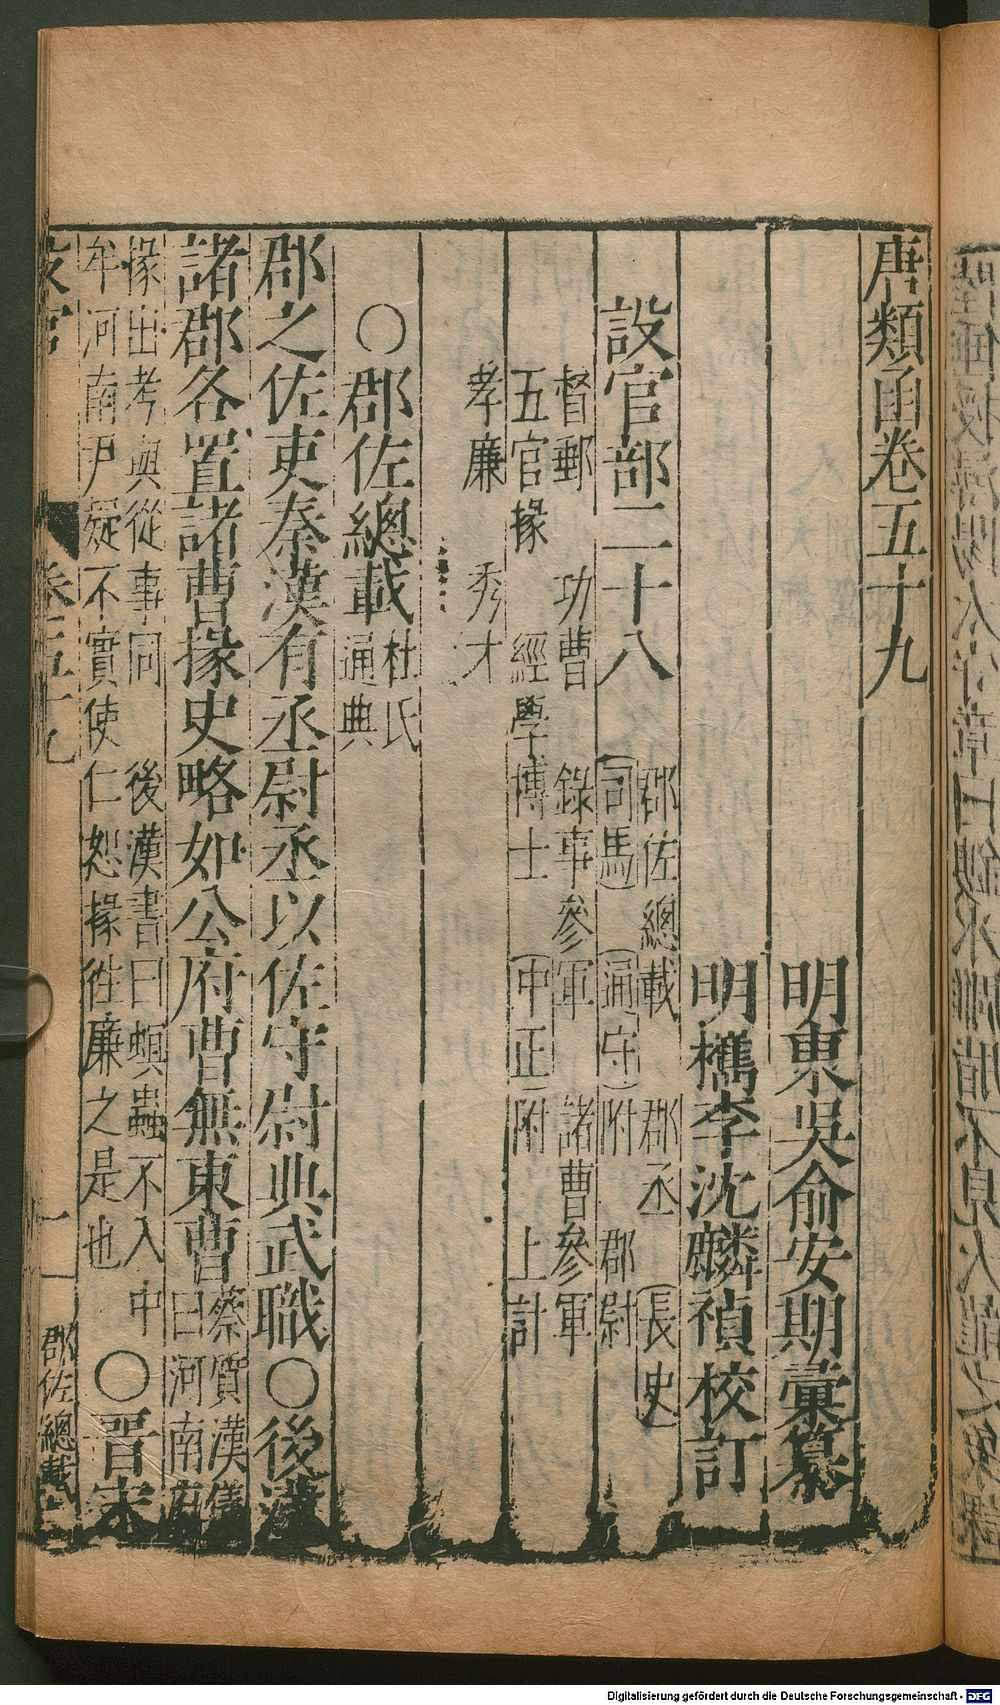 唐類函卷五十九
明東吳俞安期彙纂
明檇李沈麟禎校訂
設官部二十八
郡佐總載 郡丞 長史
司馬 通守 附 郡尉
督郵 功曹 錄事參軍 諸曹參軍
五官掾 經學博士 中正 附 上計
孝廉 秀才
〇郡佐總載 杜氏
通典
郡之佐吏秦漢有丞尉丞以佐守尉典武職〇後漢
諸郡各置諸曹掾史略如公府曹無東曹 蔡質漢儀
曰河南府
掾出考與從事同 後漢書曰螟蟲不入中
牟河南尹疑不實使仁恕掾往廉之是也
〇晉宋
設官
卷五十九
一
郡佐總載
Digitalisierung gefördert durch die Deutsche Forschungsgemeinschaft - DFG